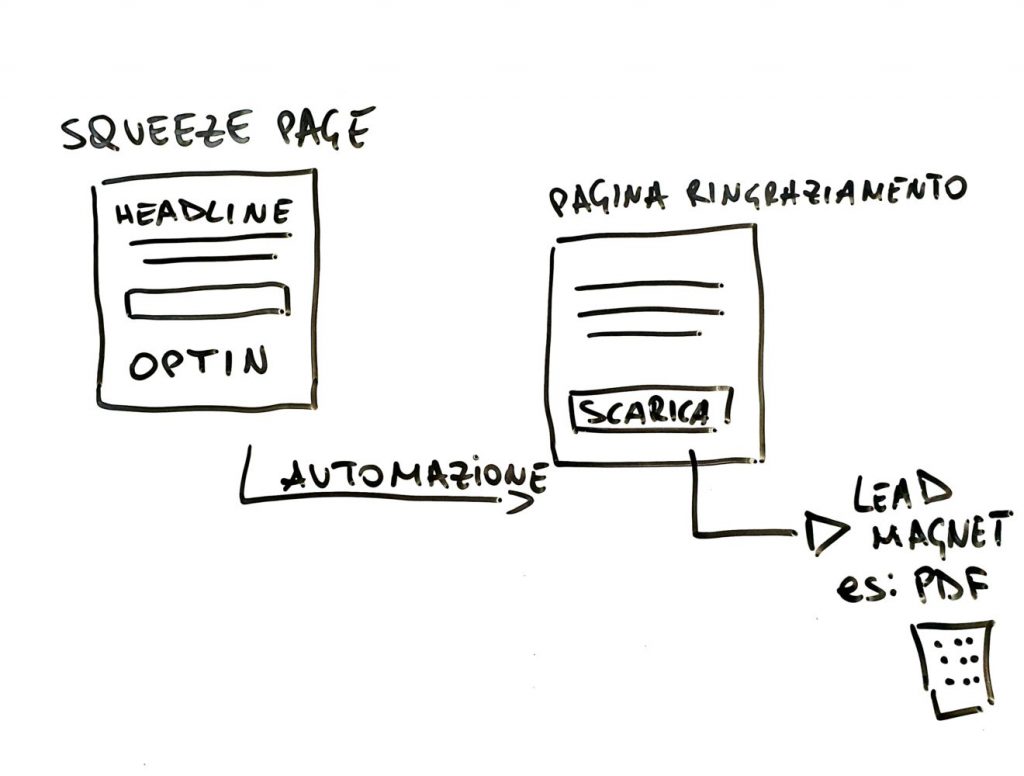 SQUEEZE PAGE
HEADLINE
OPTIN
AUTOMAZIONE
PAGINA RINGRAZIAMENTO
SCARICA
LEAD
MAGNET
es: PDF